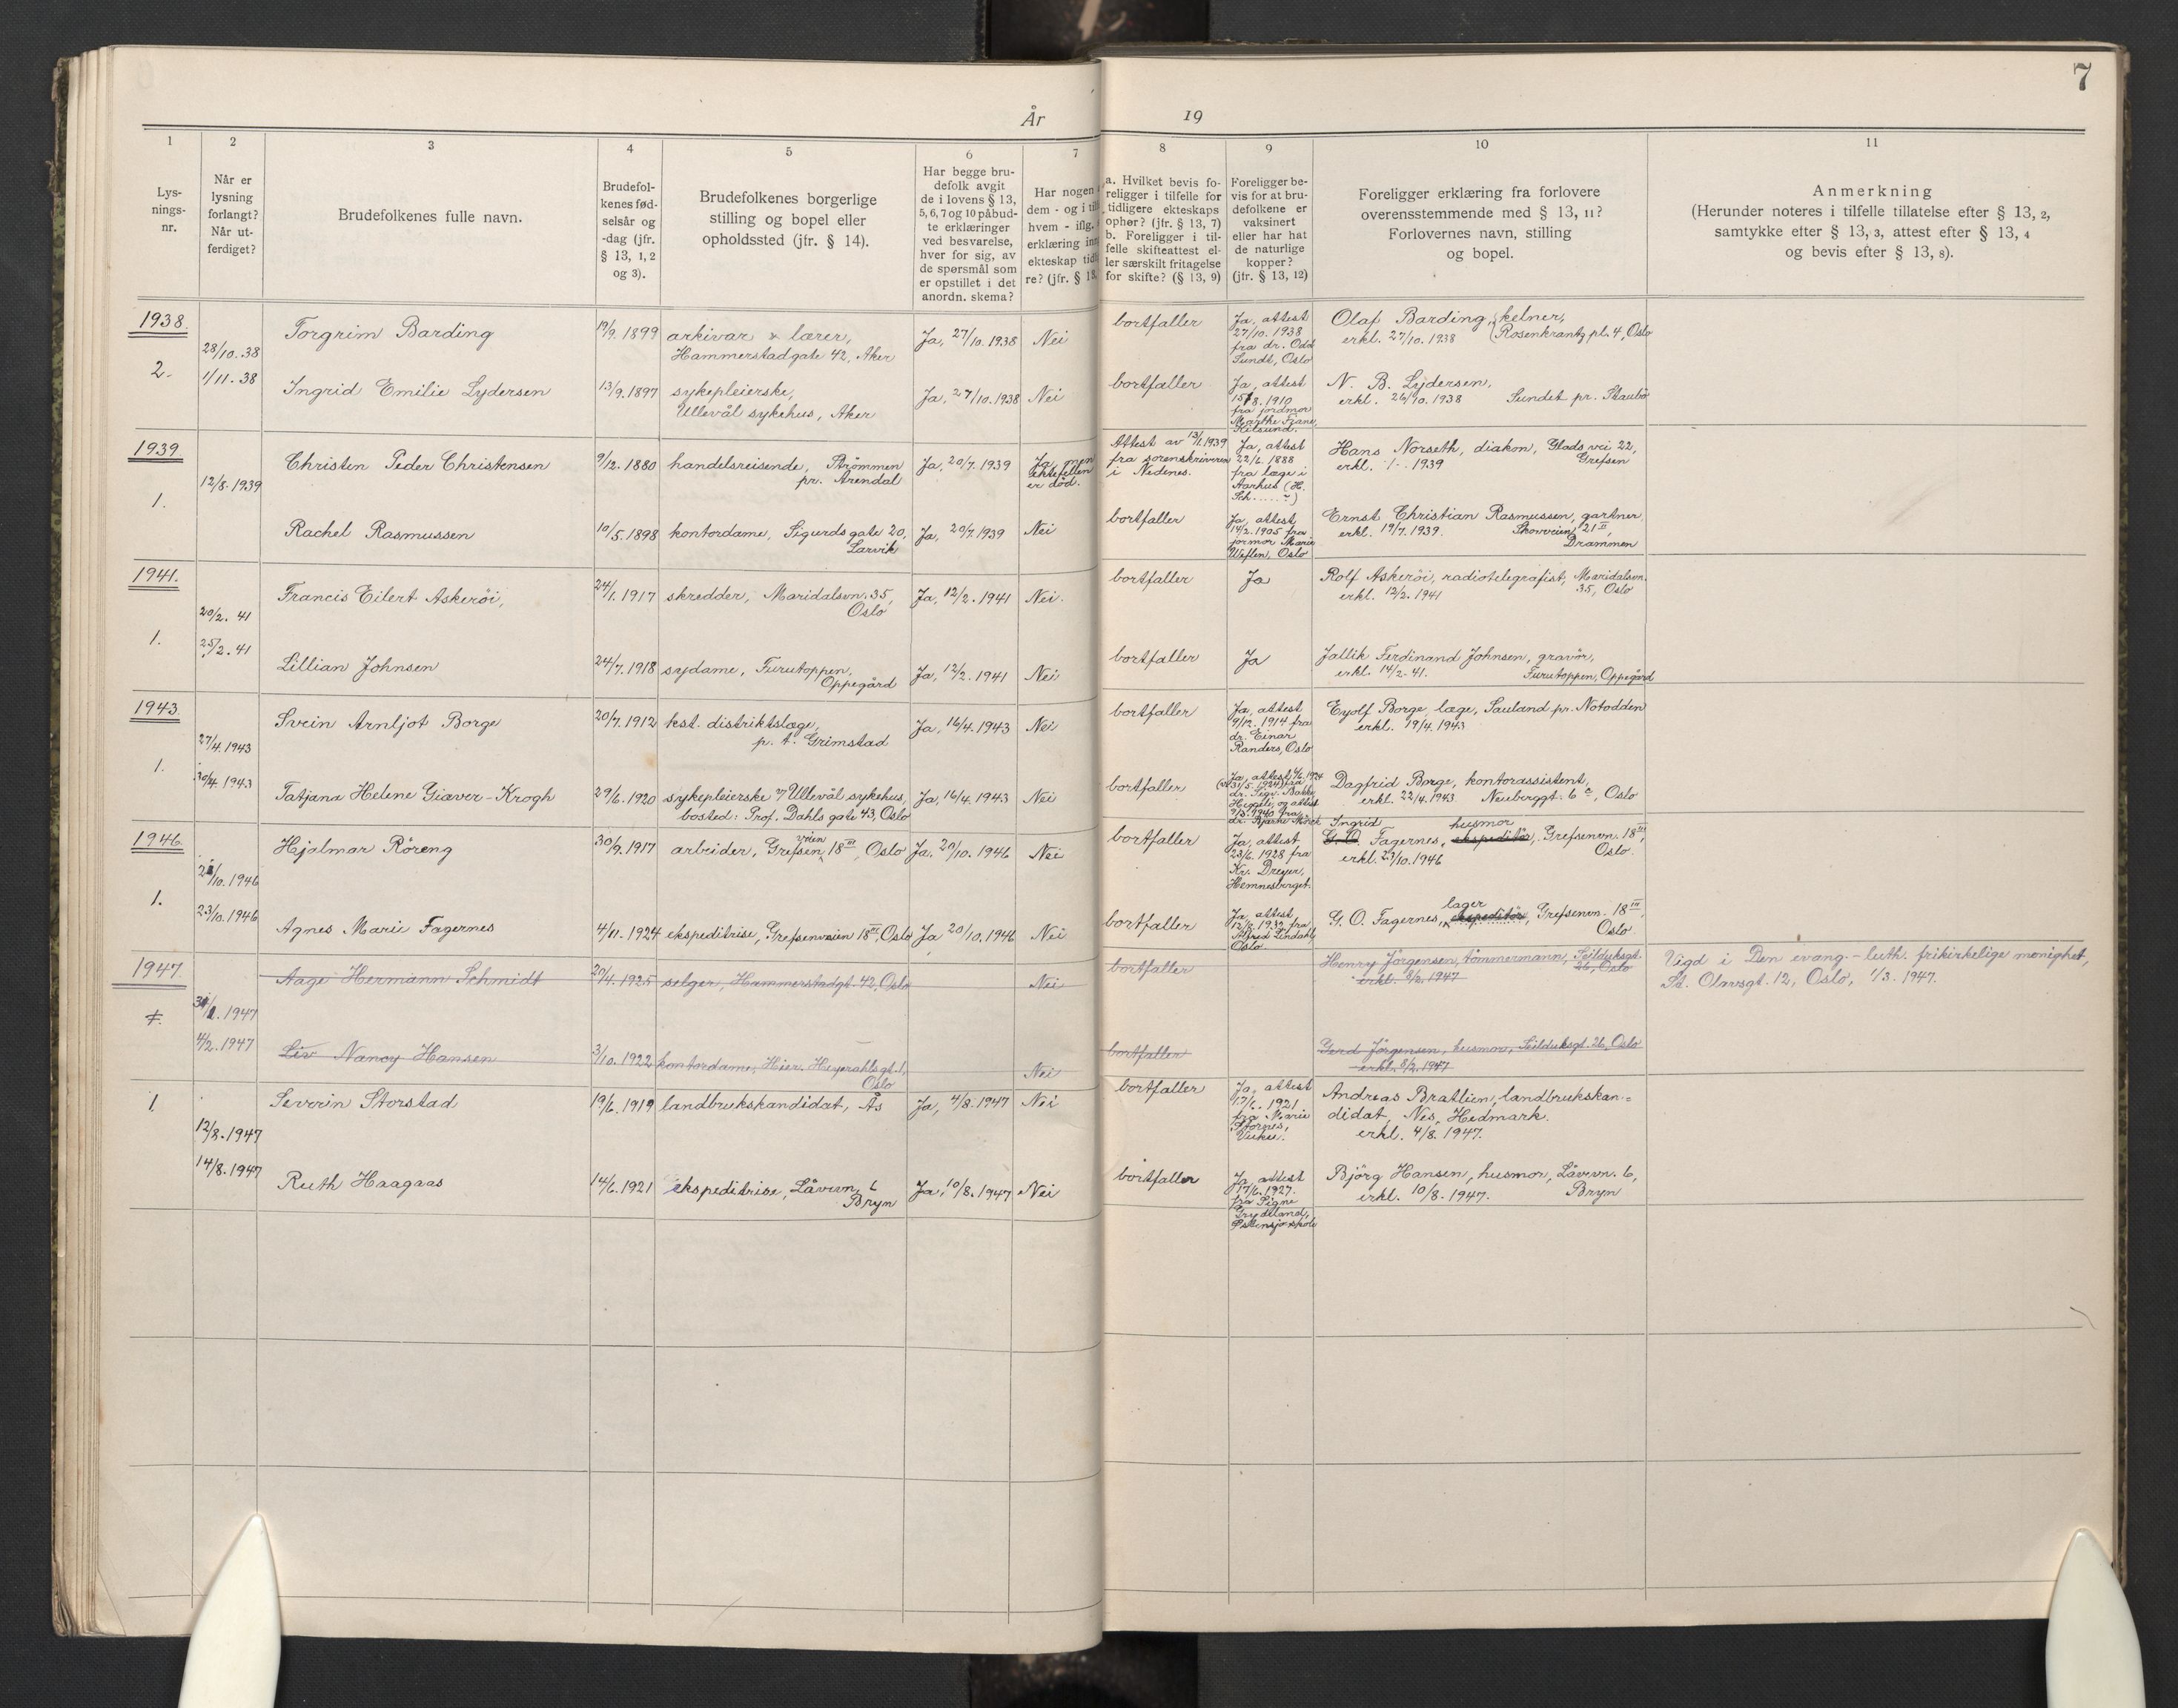 7
År
19
1
2
3
4
5
6
7
8
9
10
11
Lys-
nings-
nr.
Når er
lysning
forlangt?
Når ut-
ferdiget?
Brudefolkenes fulle navn.
Brudefol-
kenes fød-
selsår og
-dag (jfr.
§ 13, 1, 2
og 3).
Brudefolkenes borgerlige
stilling og bopel eller
opholdssted (jfr. § 14).
Har begge bru-
defolk avgit
de i lovens § 13,
5, 6, 7 og 10 påbud-
te erklæringer
ved besvarelse,
hver for sig, av
de spørsmål som
er opstillet i det
anordn. skema?
Har nogen
dem - og i
hvem - iflg.
erklæring
ekteskap
re? (jfr. §
a. Hvilket bevis fo-
religger i tilfelle for
tidligere ekteskaps
ophør? (jfr. § 13, 7)
b. Foreligger i til-
felle skifteattest el-
ler særskilt fritagelse
for skifte? (§ 13, 9)
Foreligger be-
vis for at bru-
defolkene er
vaksinert
eller har hat
de naturlige
kopper?
(jfr. § 13, 12)
Foreligger erklæring fra forlovere
overensstemmende med § 13, 11?
Forlovernes navn, stilling
og bopel.
Anmerkning
(Herunder noteres i tilfelle tillatelse efter § 13, 2,
samtykke efter § 13, 3, attest efter § 13, 4
og bevis efter § 13, 8).
1938.
2.
28/10.38
1/11.38
Torgrim Barding
19/9.1899
arkivar & lærer,
Hammerstadgate 42, Aker
Ja, 27/10.1938
Nei
bortfaller
Ja, attest
27/10.1938
fra dr. Odd
Sundt, Oslo
Olaf Barding, kelner,
erkl. 27/10.1938 Rosenkrantz pl. 4, Oslo
Ingrid Emilie Lydersen
13/9.1897
sykepleierske,
Ullevål sykehus, Aker
Ja, 27/10.1938
Nei
bortfaller
Ja, attest
15/8.1910
fra jordmor
Marthe
N. B. Lydersen,
erkl. 26/10.1938 Sundet pr. Staubø
1939
1.
12/8.1939
Christen Peder Christensen
9/12.1880
handelsreisende, Strømmen
pr. Arendal
Ja, 20/7.1939
Ja, men
ektefellen
er død.
Attest av 13/1.1939
fra sorenskriveren
i Nedenes.
Ja, attest
22/6.1888
fra læge i
Aarhus (H.
Sch.....?)
Hans Norseth, diakon, Glads vei 22,
erkl. / . 1939 Grefsen
Rachel Rasmussen
10/5.1898
kontordame, Sigurds gate 20,
Larvik
Ja, 20/7.1939
Nei
bortfaller
Ja, attest
14/2.1905 fra
jormor Marie
Oslo
Ernst Christian Rasmussen, gartner,
erkl. 19/7.1939. Skovveien 21 II,
Drammen
1941.
1.
20/2. 41
25/2. 41
Francis Eilert Askerøi,
24/1.1917
skredder, Maridalsvn. 35,
Oslo
Ja, 12/2.1941
Nei.
bortfaller
Ja
Rolf Askerøi, radiotelegrafist, Maridalsvn.
erkl. 12/2.1941 35, Oslo
Lillian Johnsen
24/7.1918
sydame, Furutoppen,
Oppegård
Ja, 12/2.1941
Nei
bortfaller
Ja
Jallik Ferdinand Johnsen, gravör,
erkl. 14/2.41. Furutoppen, Oppegård
1943.
1.
27/4.1943
30/4.1943
Svein Arnljot Borge
20/7.1912
kst. distriktslæge,
p. t. Grimstad
Ja, 16/4.1943
Nei
bortfaller
Ja, attest
9/12.1914 fra
dr. Einar
Randers, Oslo
Eyolf Borge, læge, Sauland pr. Notodden
erkl. 19/4.1943
Tatjana Helene Giæver-Krogh
29/6.1920
sykepleierske v/ Ullevål sykehus,
bosted: Prof. Dahls gate 43, Oslo
Ja, 16/4.1943
Nei
bortfaller
Dagfrid Borge, kontorassistent,
erkl. 22/4.1943 Neuberggt. 6 a, Oslo
1946
1.
21/10.1946
23/10.1946
Hjalmar Röreng
30/9.1917
arbeider, Grefsenveien 18 III, Oslo
Ja, 20/10.1946
Nei
bortfaller
Ja, attest
23/6.1928 fra
Kr. Dreyer,
Hemnesberget.
Ingrid husmor
G. O. Fagernes, ekspeditör, Grefsenvn. 18 III,
erkl. 23/10.1946 Oslo.
Agnes Marie Fagernes
4/11.1924
ekspeditrise, Grefsenveien 18 III, Oslo
Ja 20/10.1946
Nei
bortfaller
Ja, attest
12/8.1932 fra
Alfred Lindahl,
Oslo
lager
G. O. Fagernes, ekspeditör, Grefsenvn. 18 III,
Oslo
1947.
31/1.1947
4/2.1947
Aage Hermann Schmidt
20/4.1925
selger, Hammerstadgt. 42, Oslo
Nei
bortfaller
Henry Jörgensen, tömmermann, Seilduksgt.
erkl. 8/2.1947 26, Oslo
Vigd i Den evang.-luth. frikirkelige menighet,
St. Olavsgt. 12, Oslo, 1/3. 1947.
Liv Nancy Hansen
3/10.1922
kontordame, Hier. Heyerdahlsgt. 1,
Oslo
Nei
bortfaller
Gerd Jörgensen, husmor, Seilduksgt. 26, Oslo
erkl. 8/2.1947
1.
12/8.1947
14/8.1947
Severin Storstad
19/6.1919
landbrukskandidat, Ås
Ja, 4/8.1947
Nei
bortfaller
Ja, attest
17/6.1921
fra Marie
Stornes,
Vuku.
Andreas Bratlien, landbrukskan-
didat, Nes, Hedmark.
erkl. 4/8.1947.
Ruth Haagaas
14/6.1921
ekspeditrise, Låvevn. 6
Bryn
Ja, 10/8.1947
Nei
bortfaller
Ja, attest
17/6.1927.
fra Signe
Grydeland,
Østensjø skole
Bjørg Hansen, husmor, Låvevn. 6,
erkl. 10/8.1947. Bryn